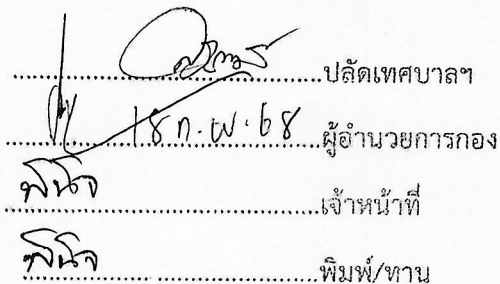 ปลัดเทศบาลฯ
18 ก.พ. 68 ผู้อำนวยการกอง
พินิจ เจ้าหน้าที่
พินิจ พิมพ์/ทาน